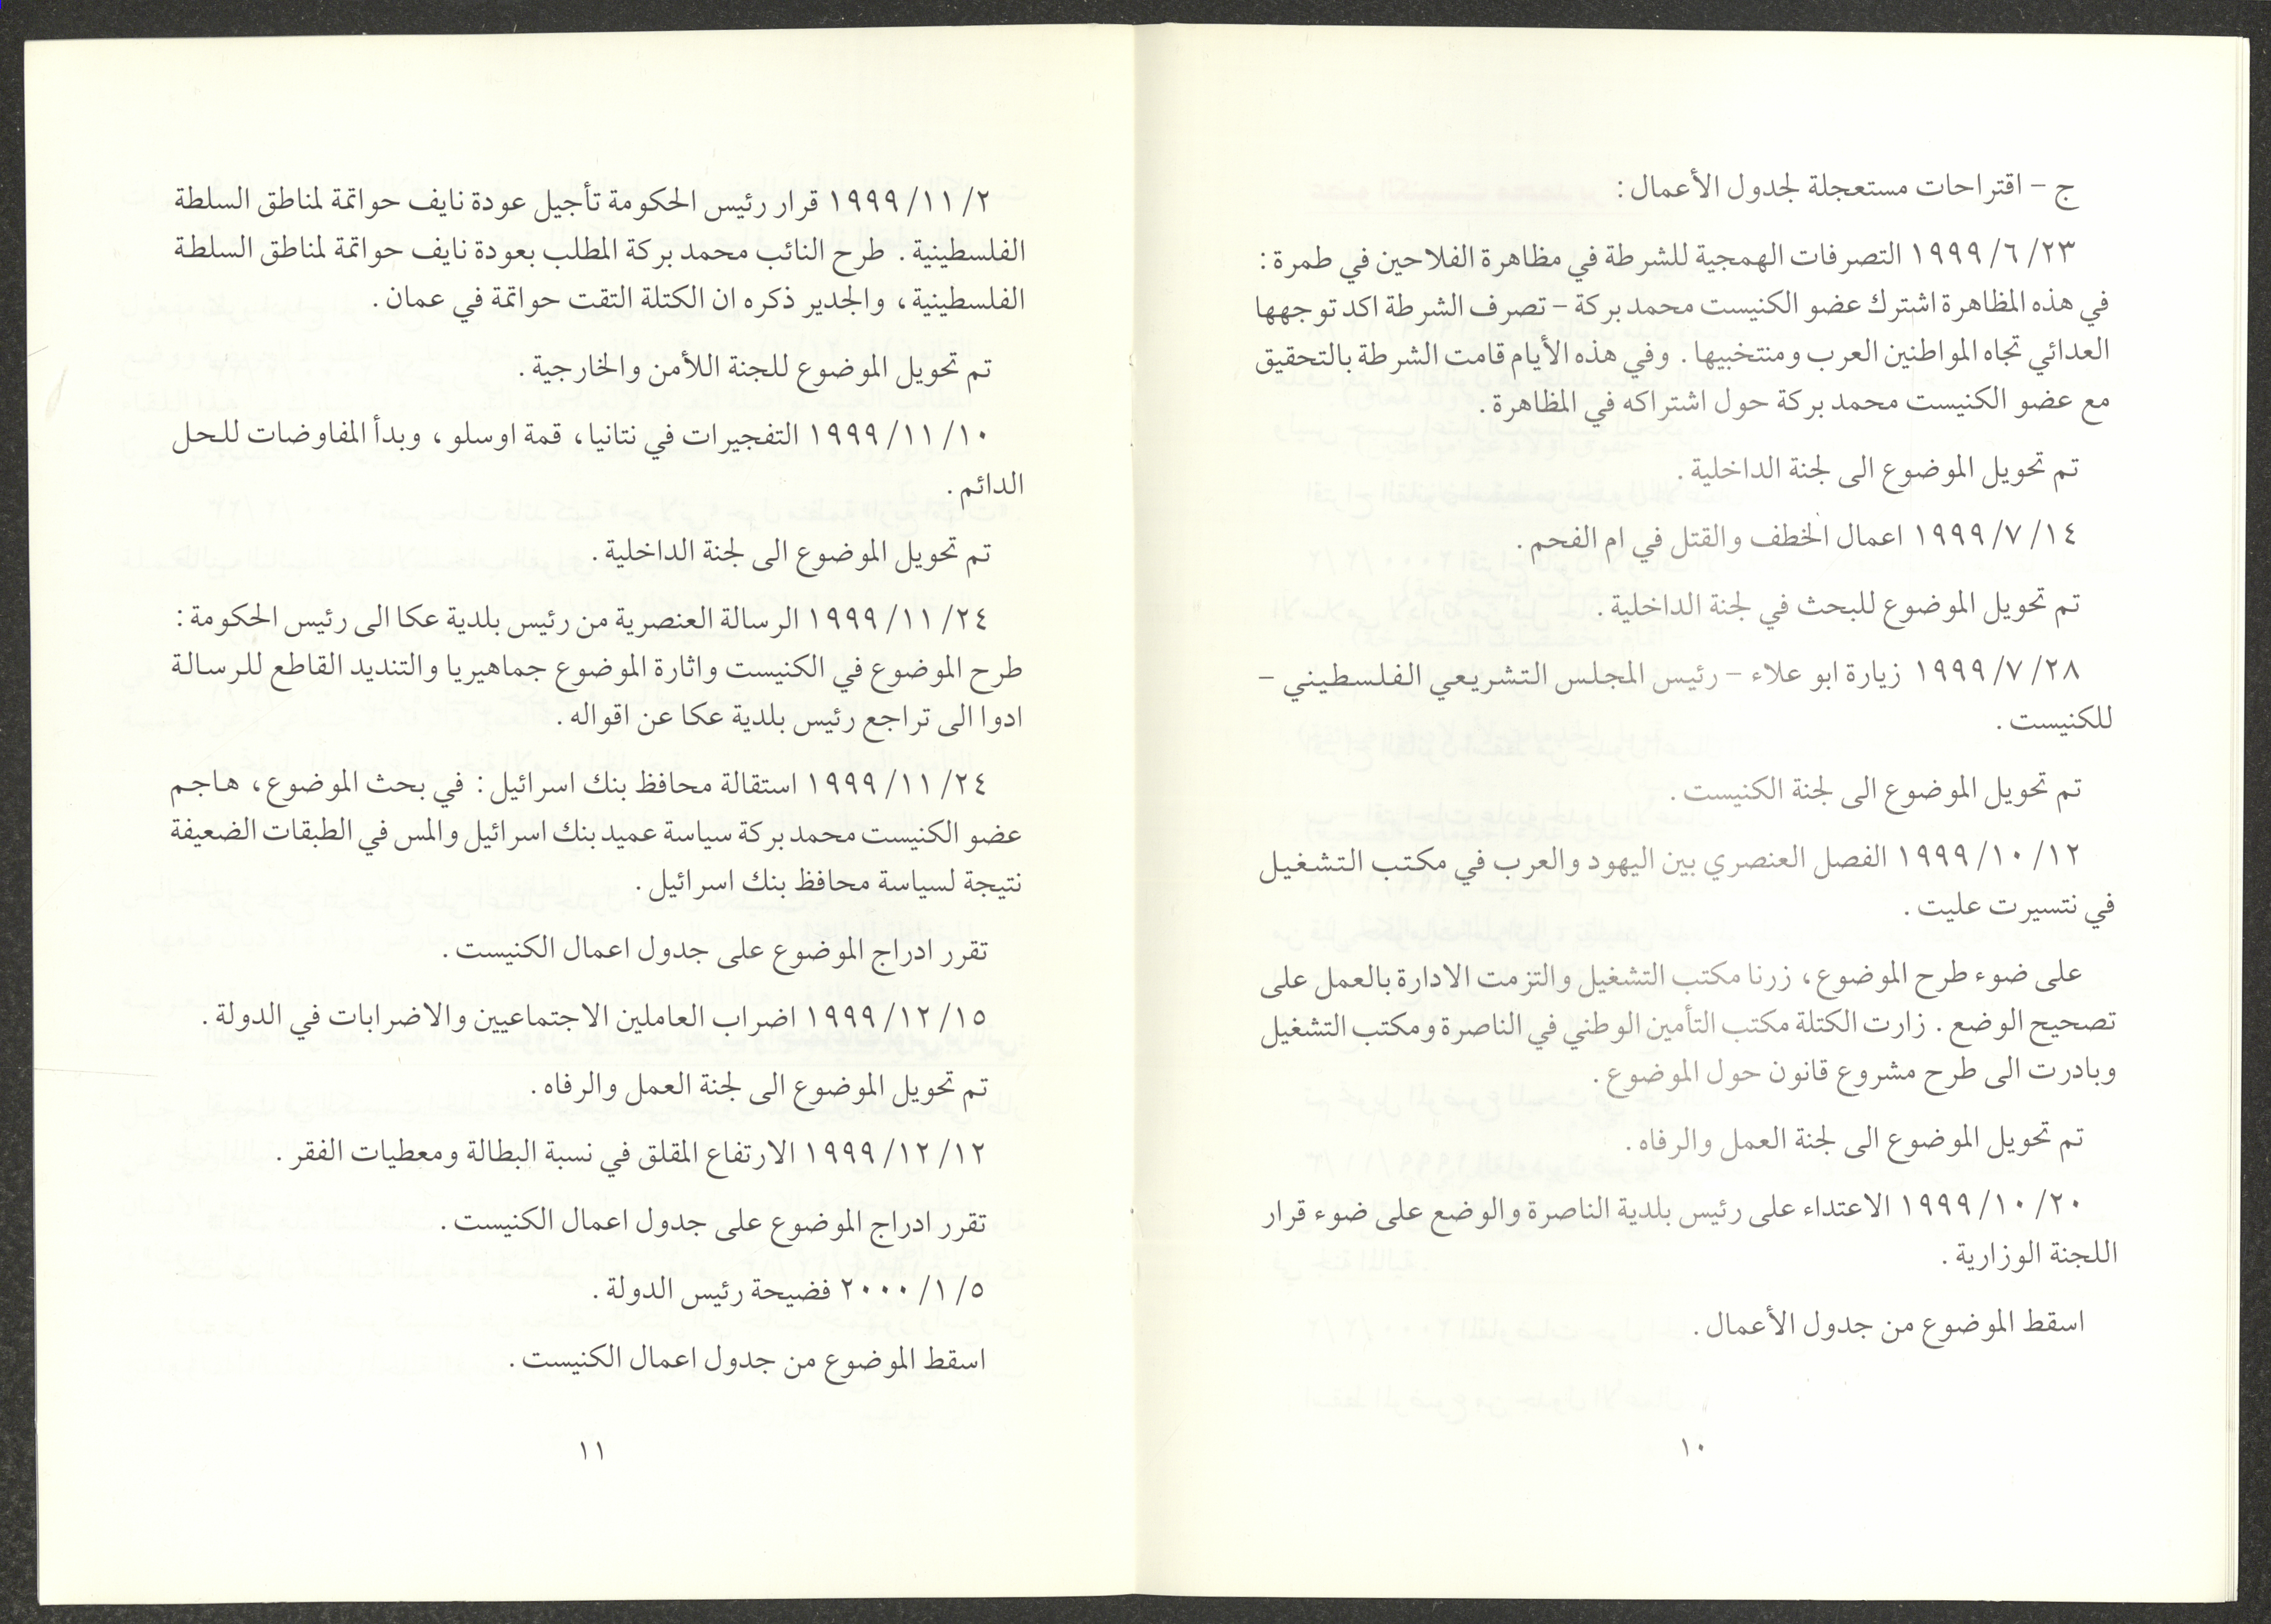 ج - اقتراحات مستعجلة لجدول الأعمال :
٢٣/ ٦/ ١٩٩٩ التصرفات الهمجية للشرطة في مظاهرة الفلاحين في طمرة :
في هذه المظاهرة اشترك عضو الكنيست محمد بركة - تصرف الشرطة اكد توجهها
العدائي تجاه المواطنين العرب ومنتخبيها . وفي هذه الأيام قامت الشرطة بالتحقيق
مع عضو الكنيست محمد بركة حول اشتراكه في المظاهرة .
تم تحويل الموضوع الى لجنة الداخلية .
١٤/ ٧/ ١٩٩٩ اعمال الخطف والقتل في ام الفحم .
تم تحويل الموضوع للبحث في لجنة الداخلية .
٢٨/ ٧/ ١٩٩٩ زيارة ابو علاء - رئيس المجلس التشريعي الفلسطيني -
للكنيست .
تم تحويل الموضوع الى لجنة الكنيست .
١٢/ ١٠/ ١٩٩٩ الفصل العنصري بين اليهود والعرب في مكتب التشغيل
في نتسيرت عليت .
على ضوء طرح الموضوع ، زرنا مكتب التشغيل والتزمت الادارة بالعمل على
تصحيح الوضع . زارت الكتلة مكتب التأمين الوطني في الناصرة ومكتب التشغيل
وبادرت الى طرح مشروع قانون حول الموضوع .
تم تحويل الموضوع الى لجنة العمل والرفاه .
٢٠/ ١٠/ ١٩٩٩ الاعتداء على رئيس بلدية الناصرة والوضع على ضوء قرار
اللجنة الوزارية .
اسقط الموضوع من جدول الأعمال .
١٠
٢/ ١١/ ١٩٩٩ قرار رئيس الحكومة تأجيل عودة نايف حواتمة لمناطق السلطة
الفلسطينية . طرح النائب محمد بركة المطلب بعودة نايف حواتمة لمناطق السلطة
الفلسطينية ، والجدير ذكره ان الكتلة التقت حواتمة في عمان .
تم تحويل الموضوع للجنة اللأمن والخارجية .
١٠/ ١١/ ١٩٩٩ التفجيرات في نتانيا ، قمة اوسلو ، وبدأ المفاوضات للحل
الدائم .
تم تحويل الموضوع الى لجنة الداخلية .
٢٤/ ١١/ ١٩٩٩ الرسالة العنصرية من رئيس بلدية عكا الى رئيس الحكومة :
طرح الموضوع في الكنيست واثارة الموضوع جماهيريا والتنديد القاطع للرسالة
ادوا الى تراجع رئيس بلدية عكا عن اقواله .
٢٤/ ١١/ ١٩٩٩ استقالة محافظ بنك اسرائيل : في بحث الموضوع ، هاجم
عضو الكنيست محمد بركة سياسة عميد بنك اسرائيل والمس في الطبقات الضعيفة
نتيجة لسياسة محافظ بنك اسرائيل .
تقرر ادراج الموضوع على جدول اعمال الكنيست .
١٥/ ١٢/ ١٩٩٩ اضراب العاملين الاجتماعيين والاضرابات في الدولة .
تم تحويل الموضوع الى لجنة العمل والرفاه .
١٢/ ١٢/ ١٩٩٩ الارتفاع المقلق في نسبة البطالة ومعطيات الفقر .
تقرر ادراج الموضوع على جدول اعمال الكنيست .
٥/ ١/ ٢٠٠٠ فضيحة رئيس الدولة .
اسقط الموضوع من جدول اعمال الكنيست .
١١